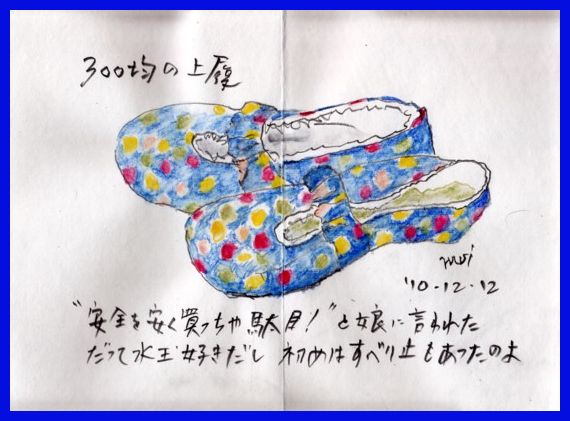 300均の上履
muri
'10-12-12
"安全を安く買っちゃ駄目!"と娘に言われた
だって水玉好きだし 初めはすべり止もあったのよ